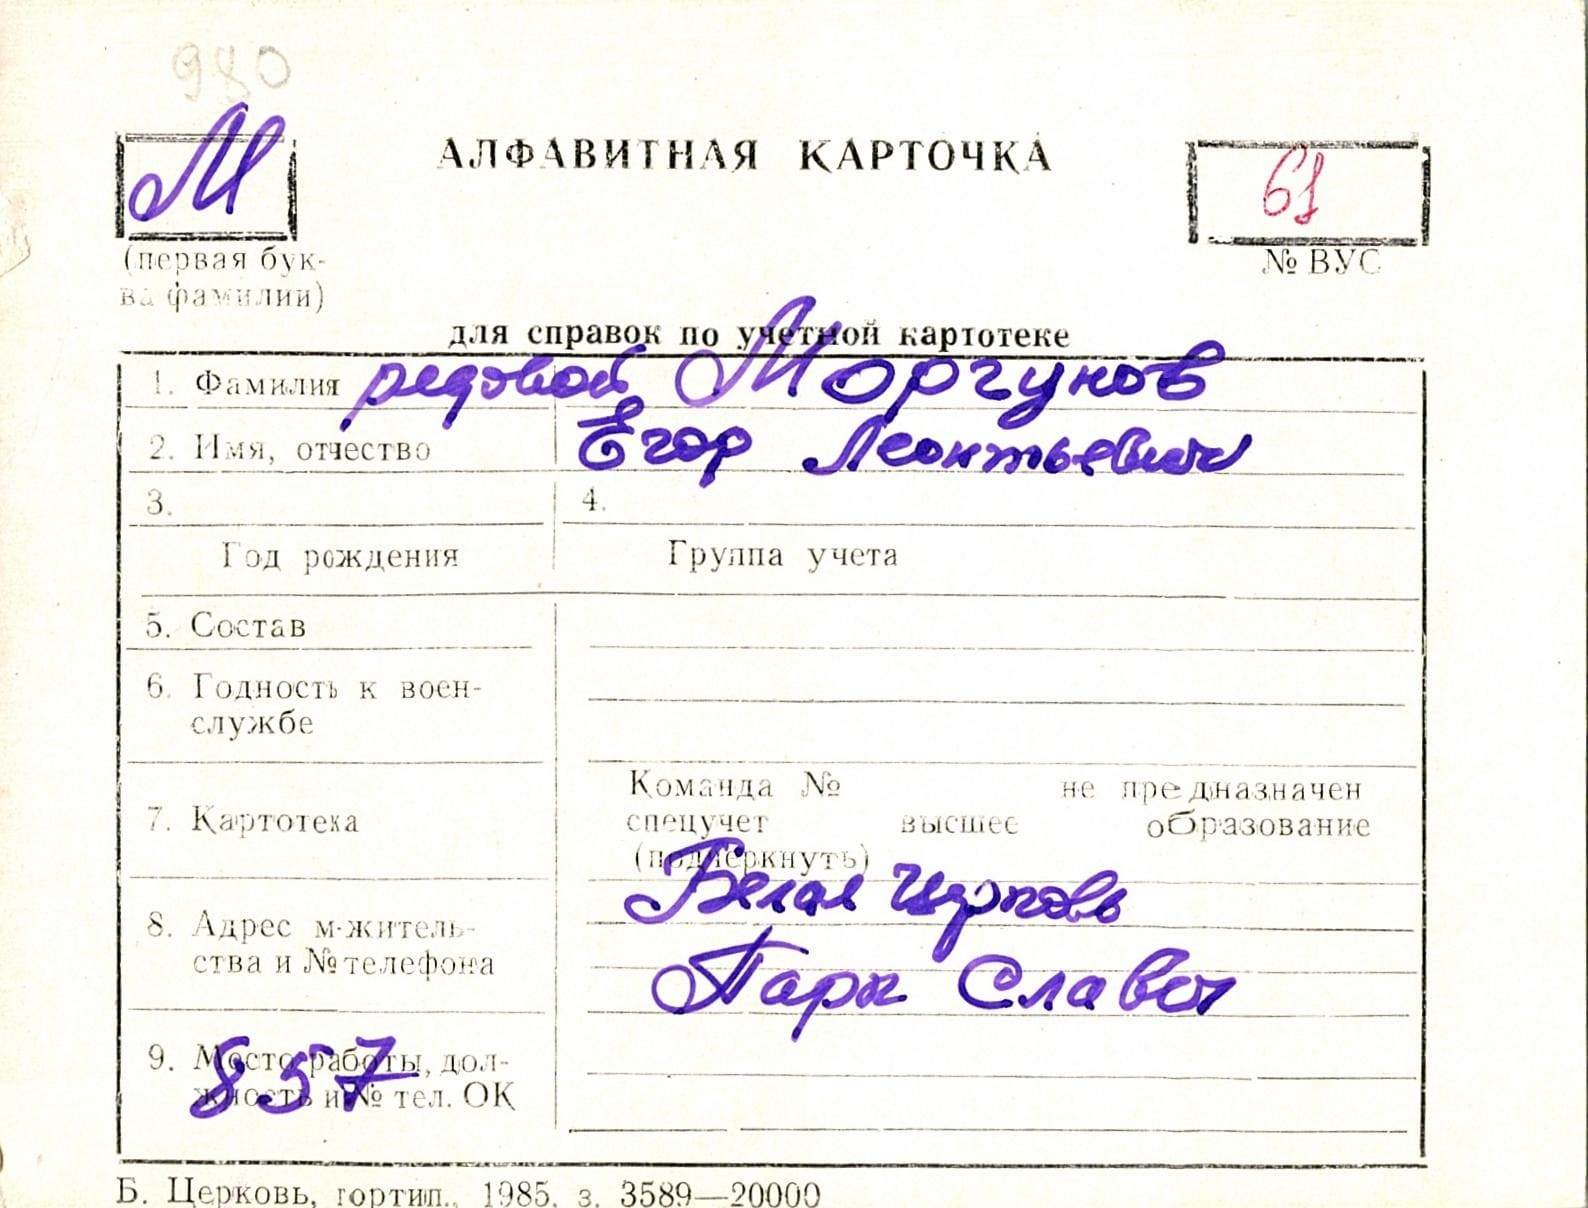 980
М
АЛФАВИТНАЯ КАРТОЧКА
61
(первая бук-
ва фамилии)
№ ВУС
для справок по учетной картотеке
1. Фамилия рядовой Моргунов
2. Имя, отчество Егор Леонтьевич
3. 4.
Год рождения Группа учета
5. Состав
6. Годность к воен-
службе
Команда № не предназначен
7. Картотека спецучет высшее образование
(подчеркнуть)
Белая Церковь
8. Адрес м-житель-
ства и № телефона Парк Славы
9. Место работы, дол-
жность и № тел. ОК
857
Б. Церковь, гортип., 1985. з. 3589—20000